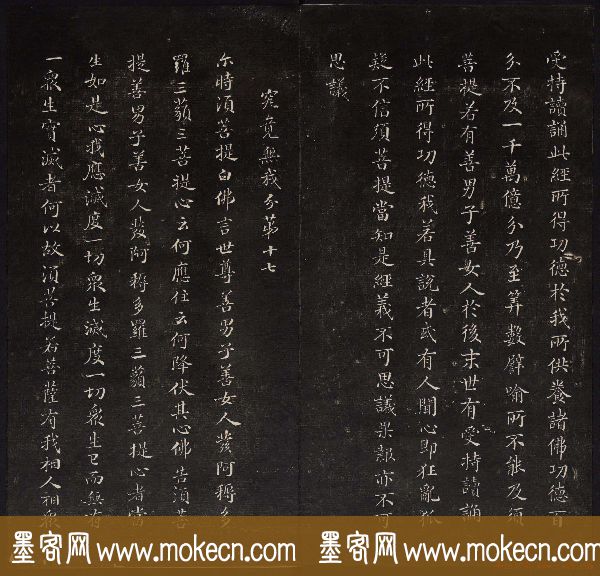 受持讀誦此經所得功德於我所供養諸佛功德百
分不及一千萬億分乃至筭數譬喻所不能及須
菩提若有善男子善女人於後末世有受持讀誦
此經所得功德我若具說者或有人聞心即狂亂狐
疑不信須菩提當知是經義不可思議果報亦不可
思議
究竟無我分第十七
尒時須菩提白佛言世尊善男子善女人發阿耨多
羅三藐三菩提心云何應住云何降伏其心佛告須菩
提善男子善女人發阿耨多羅三藐三菩提心者當
生如是心我應滅度一切眾生滅度一切眾生已而無有
一眾生實滅者何以故須菩提若菩薩有我相人相眾
墨客网 www.mokecn.com 墨客网 www.mokecn.com